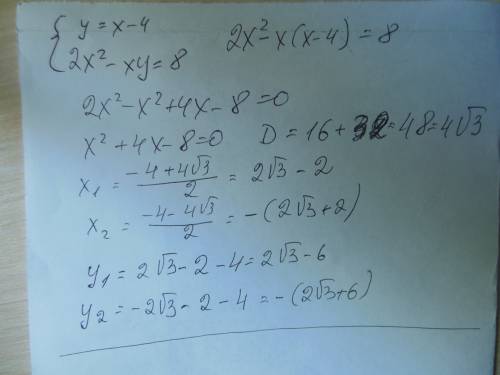 { y = x - 4
2x² - xy = 8    2x² - x(x-4) = 8
2x² - x² + 4x - 8 = 0
x² + 4x - 8 = 0    D = 16 + 32 = 48 = 4√3
x₁ = (-4 + 4√3)/2 = 2√3 - 2
x₂ = (-4 - 4√3)/2 = -(2√3 + 2)
y₁ = 2√3 - 2 - 4 = 2√3 - 6
y₂ = -2√3 - 2 - 4 = -(2√3 + 6)